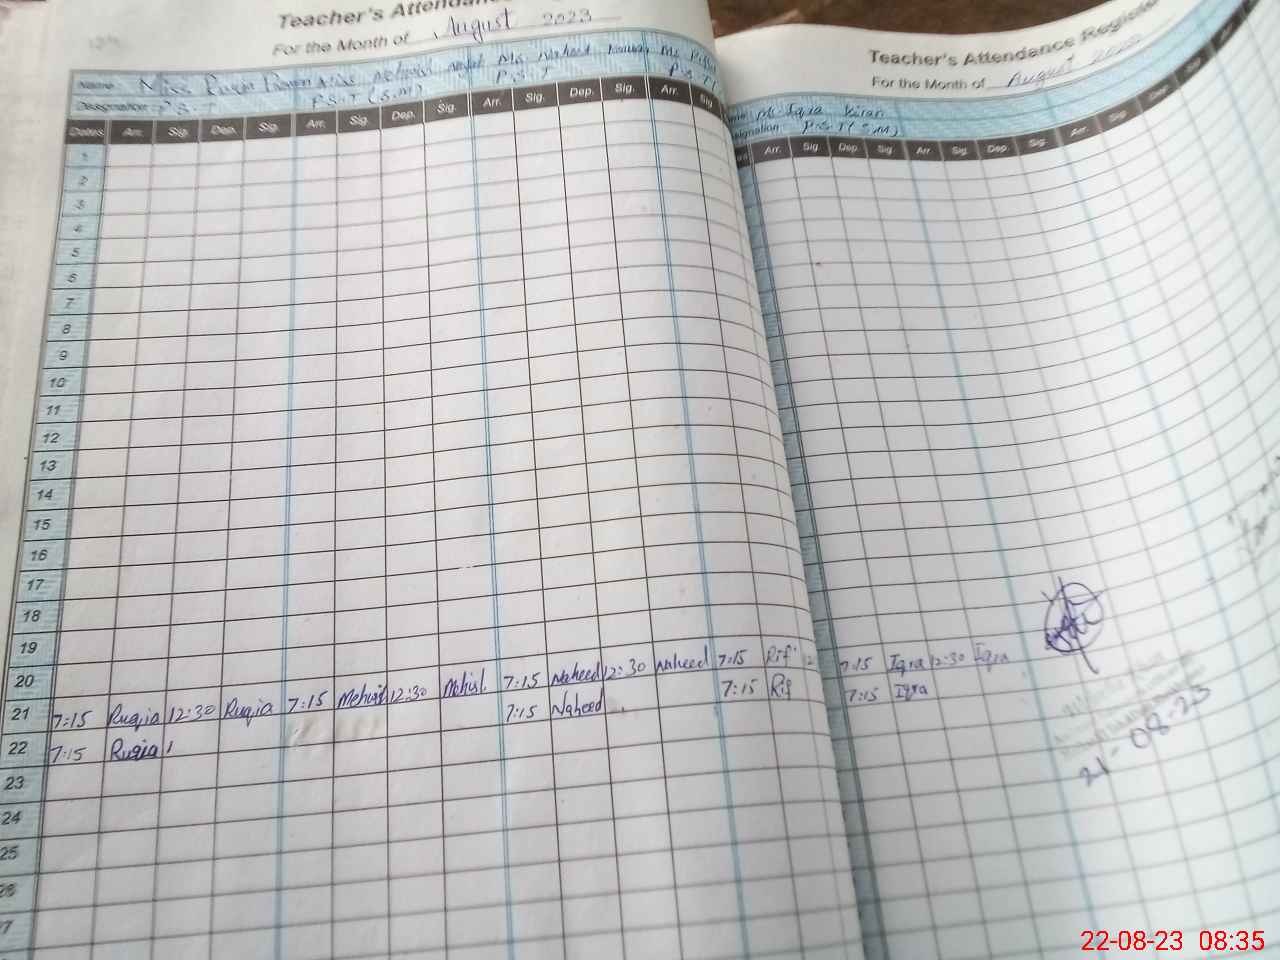 Teacher's Attendance
For the Month of August 2023
Name: Miss Ruqia Miss Mehwish Ms Naheed Ms
Designation: P.S.T P.S.T (S.M) P.S.T P.S.T
Dates Arr. Sig. Dep. Sig. Arr. Sig. Dep. Sig. Arr. Sig. Dep. Sig. Arr. Sig.
1
2
3
4
5
6
7
8
9
10
11
12
13
14
15
16
17
18
19
20
21 7:15 Ruqia 12:30 Ruqia 7:15 Mehwish 12:30 Mehwish 7:15 Naheed 12:30 Naheed 7:15 Rif 12
22 7:15 Ruqia 7:15 Naheed 7:15 Rif
23
24
25
26
27
Teacher's Attendance Register
For the Month of August
Ms. Iqra Kiran
Designation: P.S.T (S.M)
Arr. Sig. Dep. Sig. Arr. Sig. Dep. Sig. Arr. Sig. Dep. Sig.
7:15 Iqra 12:30 Iqra
7:15 Iqra
21-08-23
22-08-23 08:35